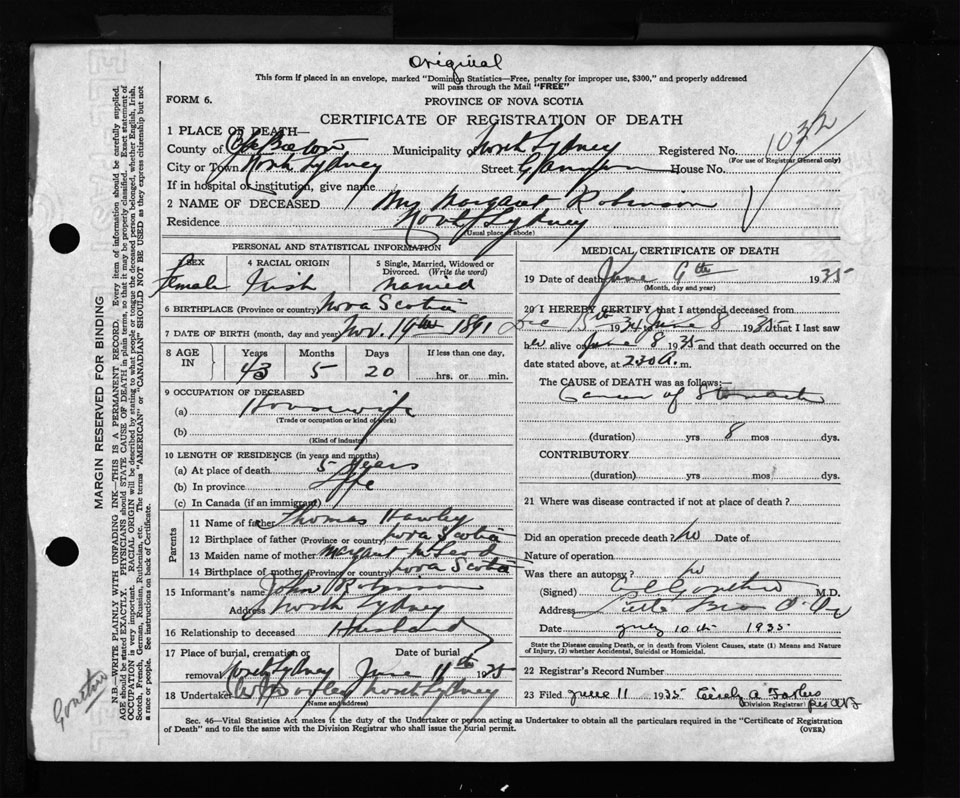 Original
This form if placed in an envelope, marked "Dominion Statistics—Free, penalty for improper use, $300," and properly addressed
will pass through the Mail "FREE"
FORM 6.
PROVINCE OF NOVA SCOTIA
CERTIFICATE OF REGISTRATION OF DEATH
1032
1 PLACE OF DEATH—
County of Cape Breton Municipality of North Sydney Registered No.
(For use of Registrar General only)
City or Town North Sydney Street House No.
If in hospital or institution, give name
2 NAME OF DECEASED Mrs Margaret Robinson
Residence North Sydney
(Usual place of abode)
PERSONAL AND STATISTICAL INFORMATION
3 SEX 4 RACIAL ORIGIN 5 Single, Married, Widowed or Divorced. (Write the word)
Female Irish Married
6 BIRTHPLACE (Province or country) Nova Scotia
7 DATE OF BIRTH (month, day and year) Nov. 19th 1891
8 AGE IN Years Months Days If less than one day,
43 5 20 hrs. or min.
9 OCCUPATION OF DECEASED
(a) Housewife
(Trade or occupation or kind of work)
(b)
(Kind of industry)
10 LENGTH OF RESIDENCE (in years and months)
(a) At place of death 5 years
(b) In province Life
(c) In Canada (if an immigrant)
Parents
11 Name of father Thomas Hawley
12 Birthplace of father (Province or country) Nova Scotia
13 Maiden name of mother Margaret McLeod
14 Birthplace of mother (Province or country) Nova Scotia
15 Informant's name John Robinson
Address North Sydney
16 Relationship to deceased Husband
17 Place of burial, cremation or removal Date of burial
North Sydney June 11th 1935
18 Undertaker North Sydney
(Name and address)
MEDICAL CERTIFICATE OF DEATH
19 Date of death June 9th 1935
(Month, day and year)
20 I HEREBY CERTIFY that I attended deceased from
Dec 15th 1934 June 8 1935 that I last saw
her alive on June 8 1935 and that death occurred on the
date stated above, at 230 A. m.
The CAUSE OF DEATH was as follows:—
Cancer of Stomach
(duration) yrs 8 mos dys.
CONTRIBUTORY
(duration) yrs mos dys.
21 Where was disease contracted if not at place of death?
Did an operation precede death? No Date of
Nature of operation
Was there an autopsy? No
(Signed) M.D.
Address
Date July 10th 1935
State the Disease causing Death, or in death from Violent Causes, state (1) Means and Nature
of Injury, (2) whether Accidental, Suicidal or Homicidal.
22 Registration Record Number
23 Filed June 11 1935
Division Registrar
Sec. 46—Vital Statistics Act makes it the duty of the Undertaker or person acting as Undertaker to obtain all the particulars required in the "Certificate of Registration
of Death" and to file the same with the Division Registrar who shall issue the burial permit.
(OVER)
MARGIN RESERVED FOR BINDING
N.B.—WRITE PLAINLY WITH UNFADING INK—THIS IS A PERMANENT RECORD. Every item of information should be carefully supplied.
AGE should be stated EXACTLY. PHYSICIANS should STATE CAUSE OF DEATH in plain terms, so that it may be properly classified. Exact statement of
OCCUPATION is very important. RACIAL ORIGIN will be described by stating to what people or tongue the deceased person belonged, whether English, Irish,
Scotch, French, German, Russian, Ruthenian, etc. The terms "AMERICAN" or "CANADIAN" SHOULD NOT BE USED as they express citizenship but not
a race or people. See instructions on back of Certificate.